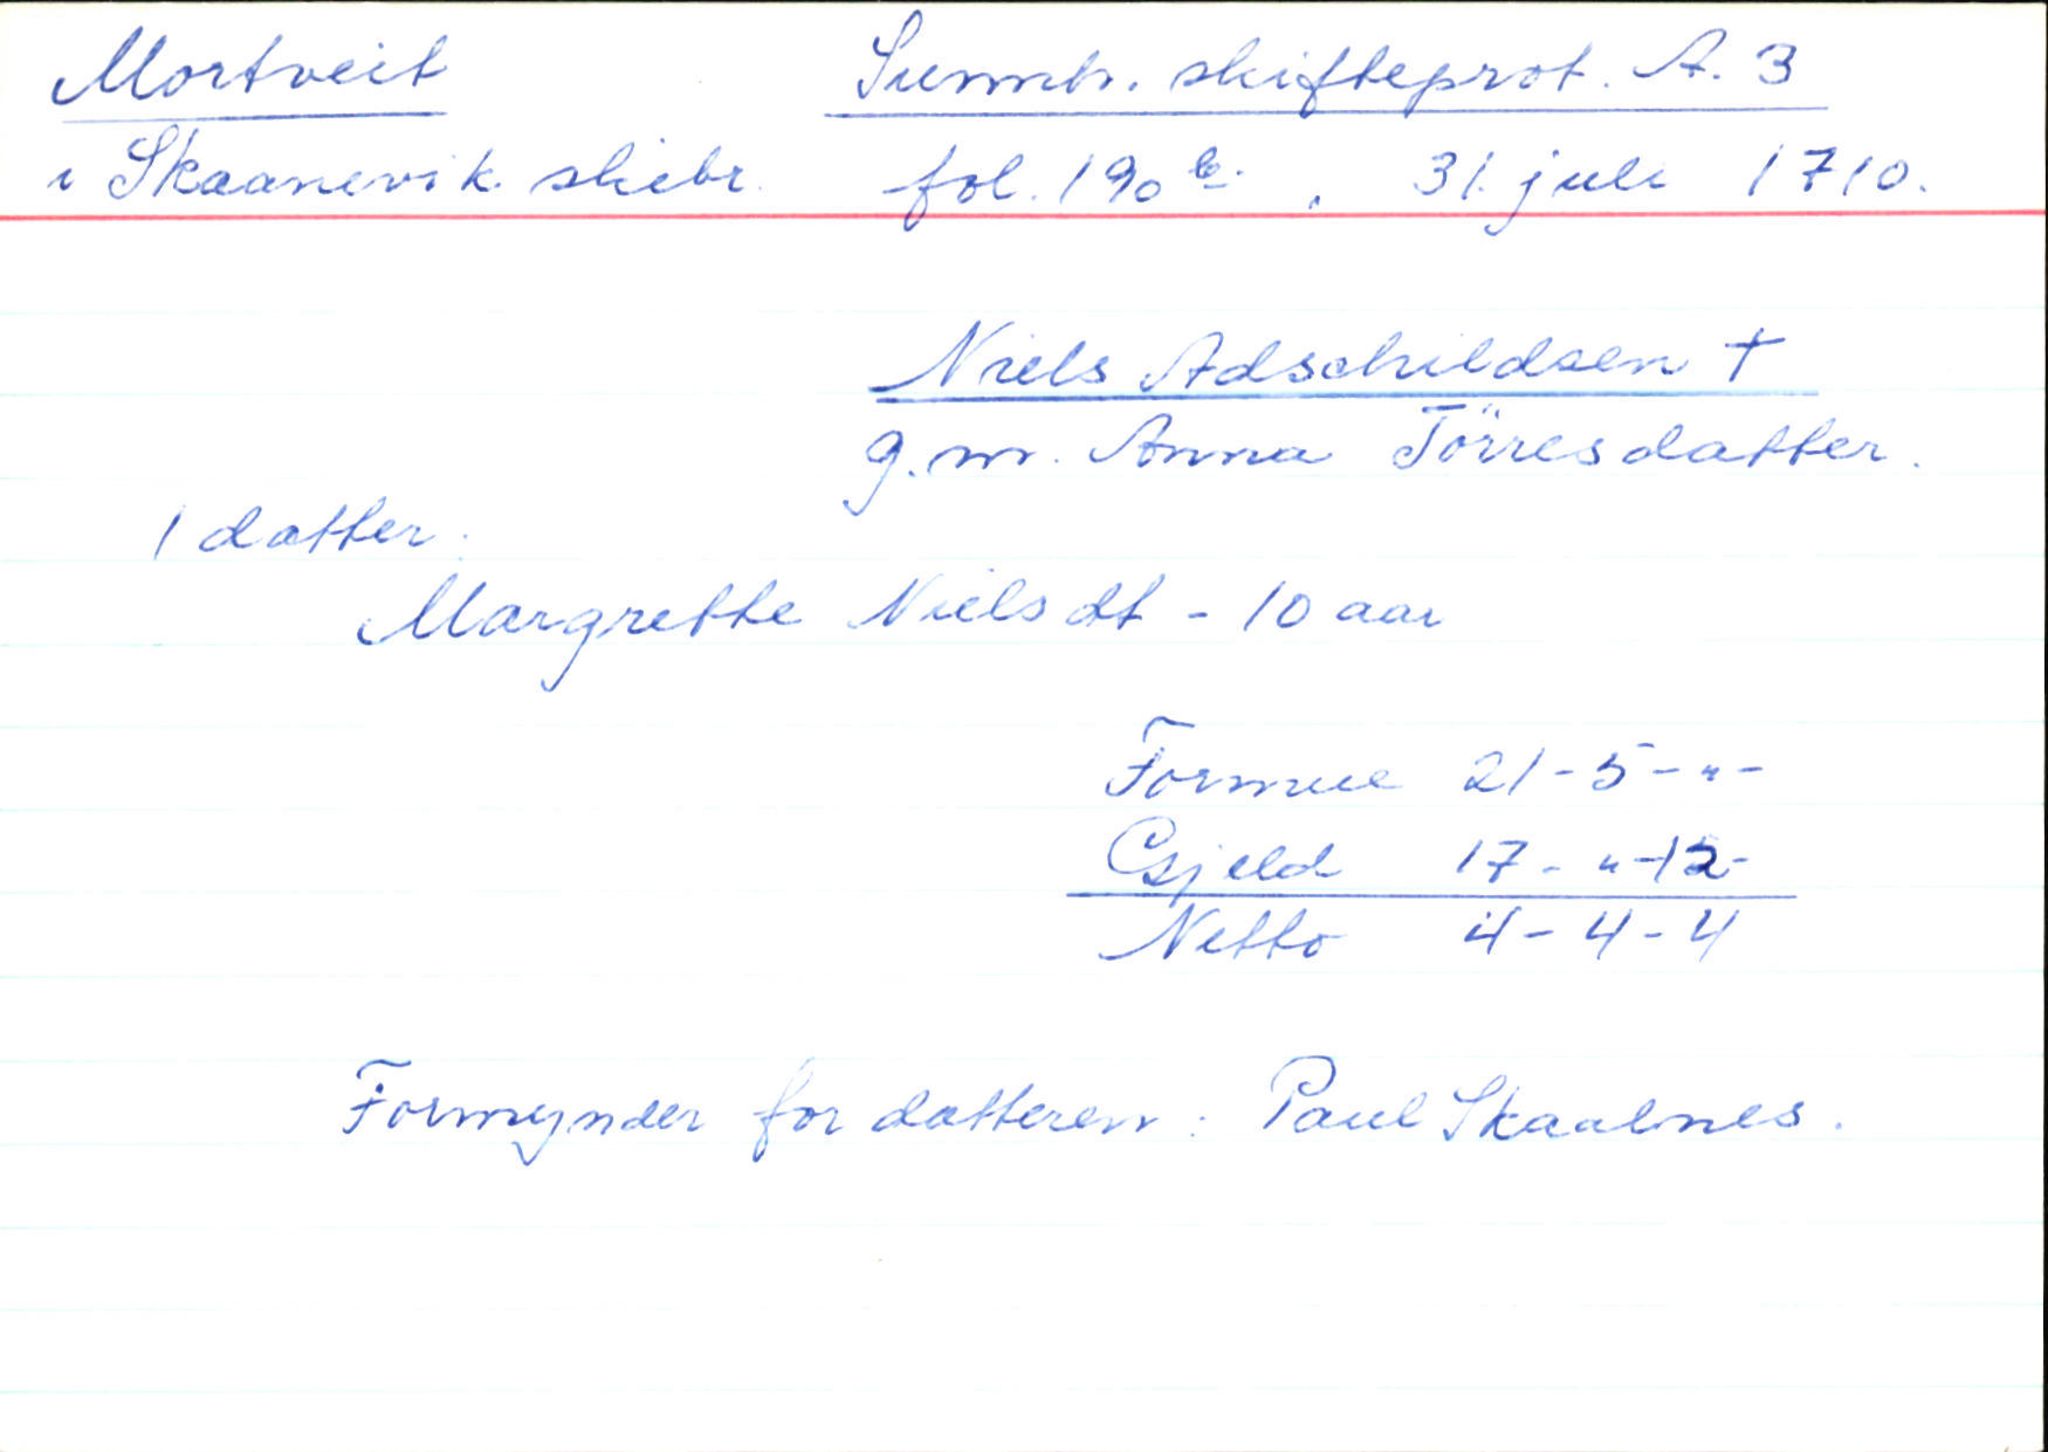 Mortveit Sunnh. skifteprot. A. 3
i Skaanevik skibr. fol. 190 b. 31. juli 1710.
Niels Adschildsen †
g. m. Anna Törresdatter.
1 datter:
Margrethe Nielsdt - 10 aar
Formue 21-5-"-
Gjeld 17-"-12-
Netto 4-4-4
Formynder for datteren: Paul Skaalnes.